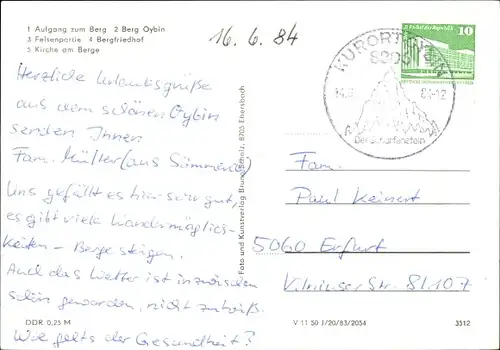 1 Aufgang zum Berg 2 Berg Oybin
3 Felsenpartie 4 Bergfriedhof
5 Kirche am Berge
16. 6. 84
Herzliche Urlaubsgrüße
aus dem schönen Oybin
senden Ihnen
Fam. Müller (aus Sömmerda)
Uns gefällt es hier sehr gut,
es gibt viele Wandermöglich-
keiten - Berge steigen.
Auch das Wetter ist inzwischen
schön geworden, nicht zu heiß.
Wie gehts der Gesundheit?
DDR 0,25 M
Foto und Kunstverlag Bruno Scholz, 8705 Ebersbach
KURORT OYBIN
8806
84-12
Der Scharfenstein
10
Fam.
Paul Keinert
5060 Erfurt
Vilniuser Str. 81.107
V 11 50 J/20/83/2054
3512